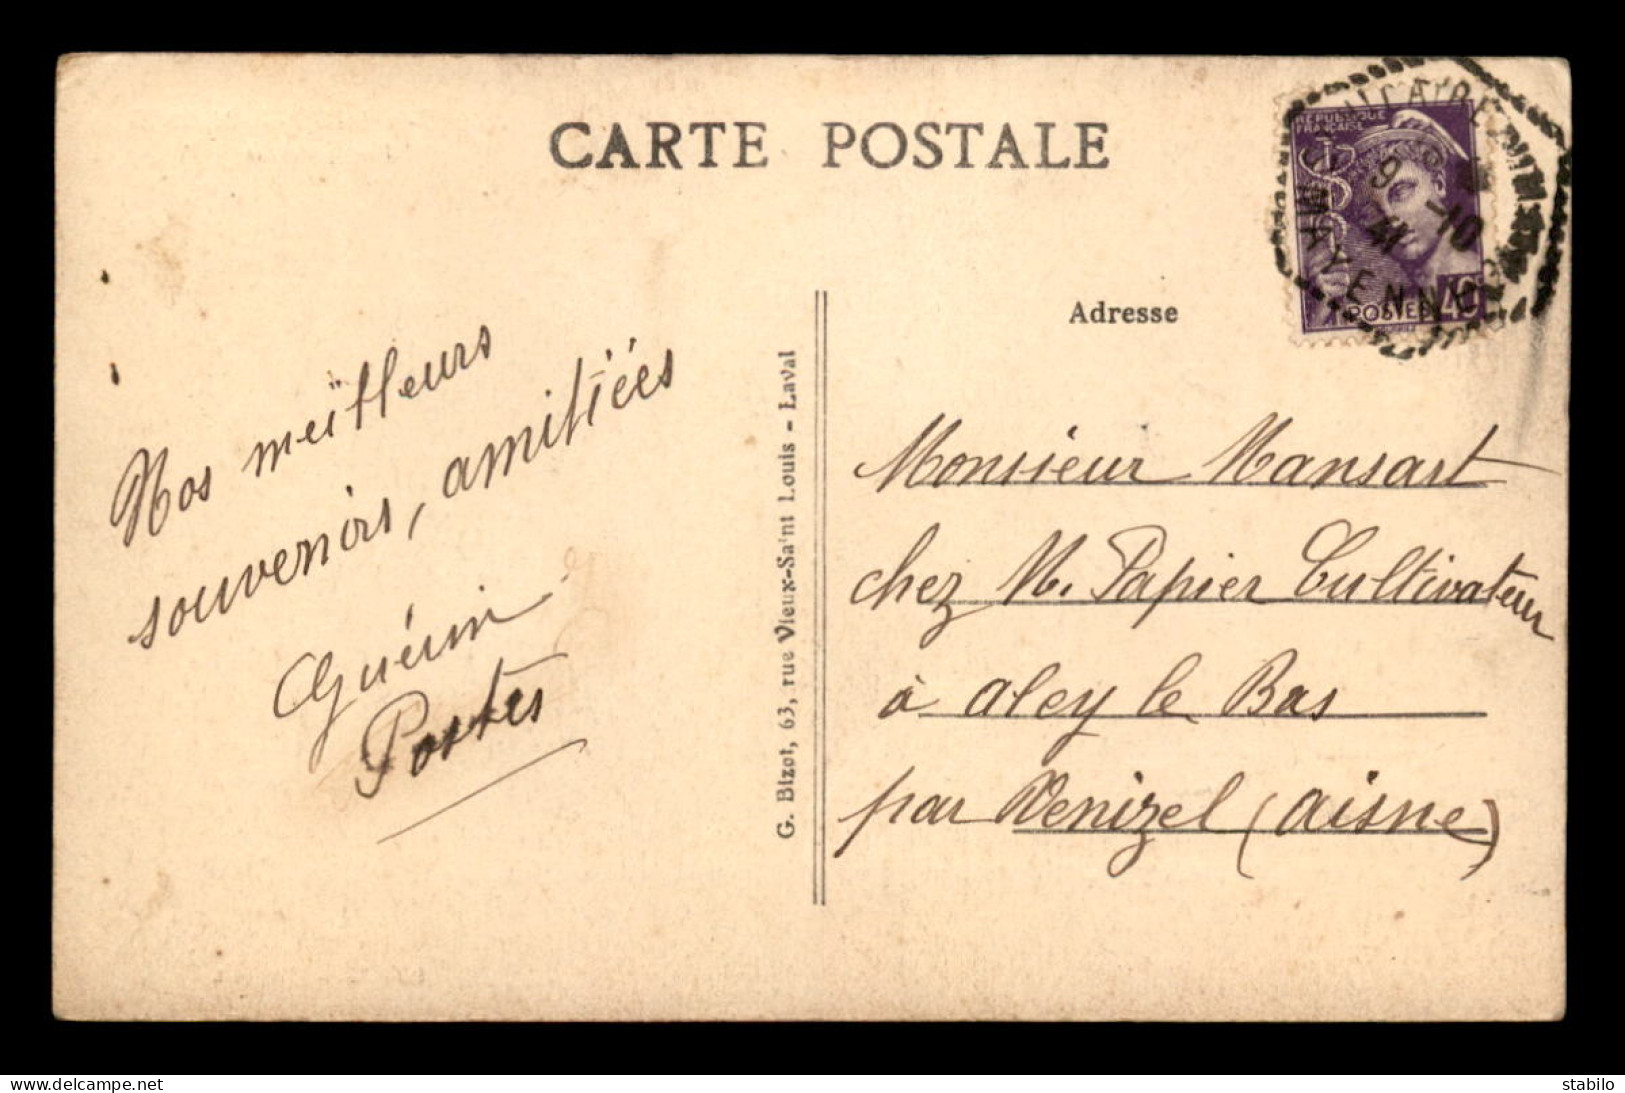 CARTE POSTALE
RÉPUBLIQUE
FRANÇAISE
POSTES
MAYENNE
9
-10
41
Adresse
Nos meilleurs
souvenirs, amitiées
Guérin
Postes
G. Bizot, 63, rue Vieux-Saint Louis - Laval
Monsieur Mansart
chez M. Papier Cultivateur
à aley le Bas
par Venizel (aisne)
delcampe.net
stabilo